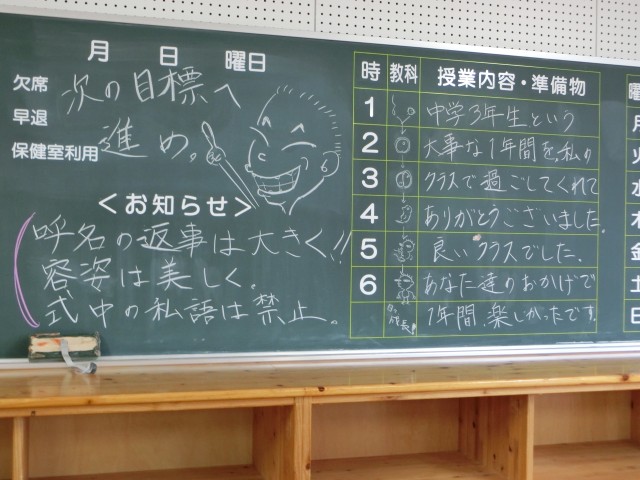 月 日 曜日
欠席
早退
保健室利用
次の目標へ
進め。
<お知らせ>
呼名の返事は大きく!!
容姿は美しく。
式中の私語は禁止。
時 教科 授業内容・準備物
1 中学3年生という
2 大事な1年間を、私の
3 クラスで過ごしてくれて
4 ありがとうございました。
5 良いクラスでした。
6 あなた達のおかげで
成長!
1年間、楽しかったです。
曜
月
火
水
木
金
土
日